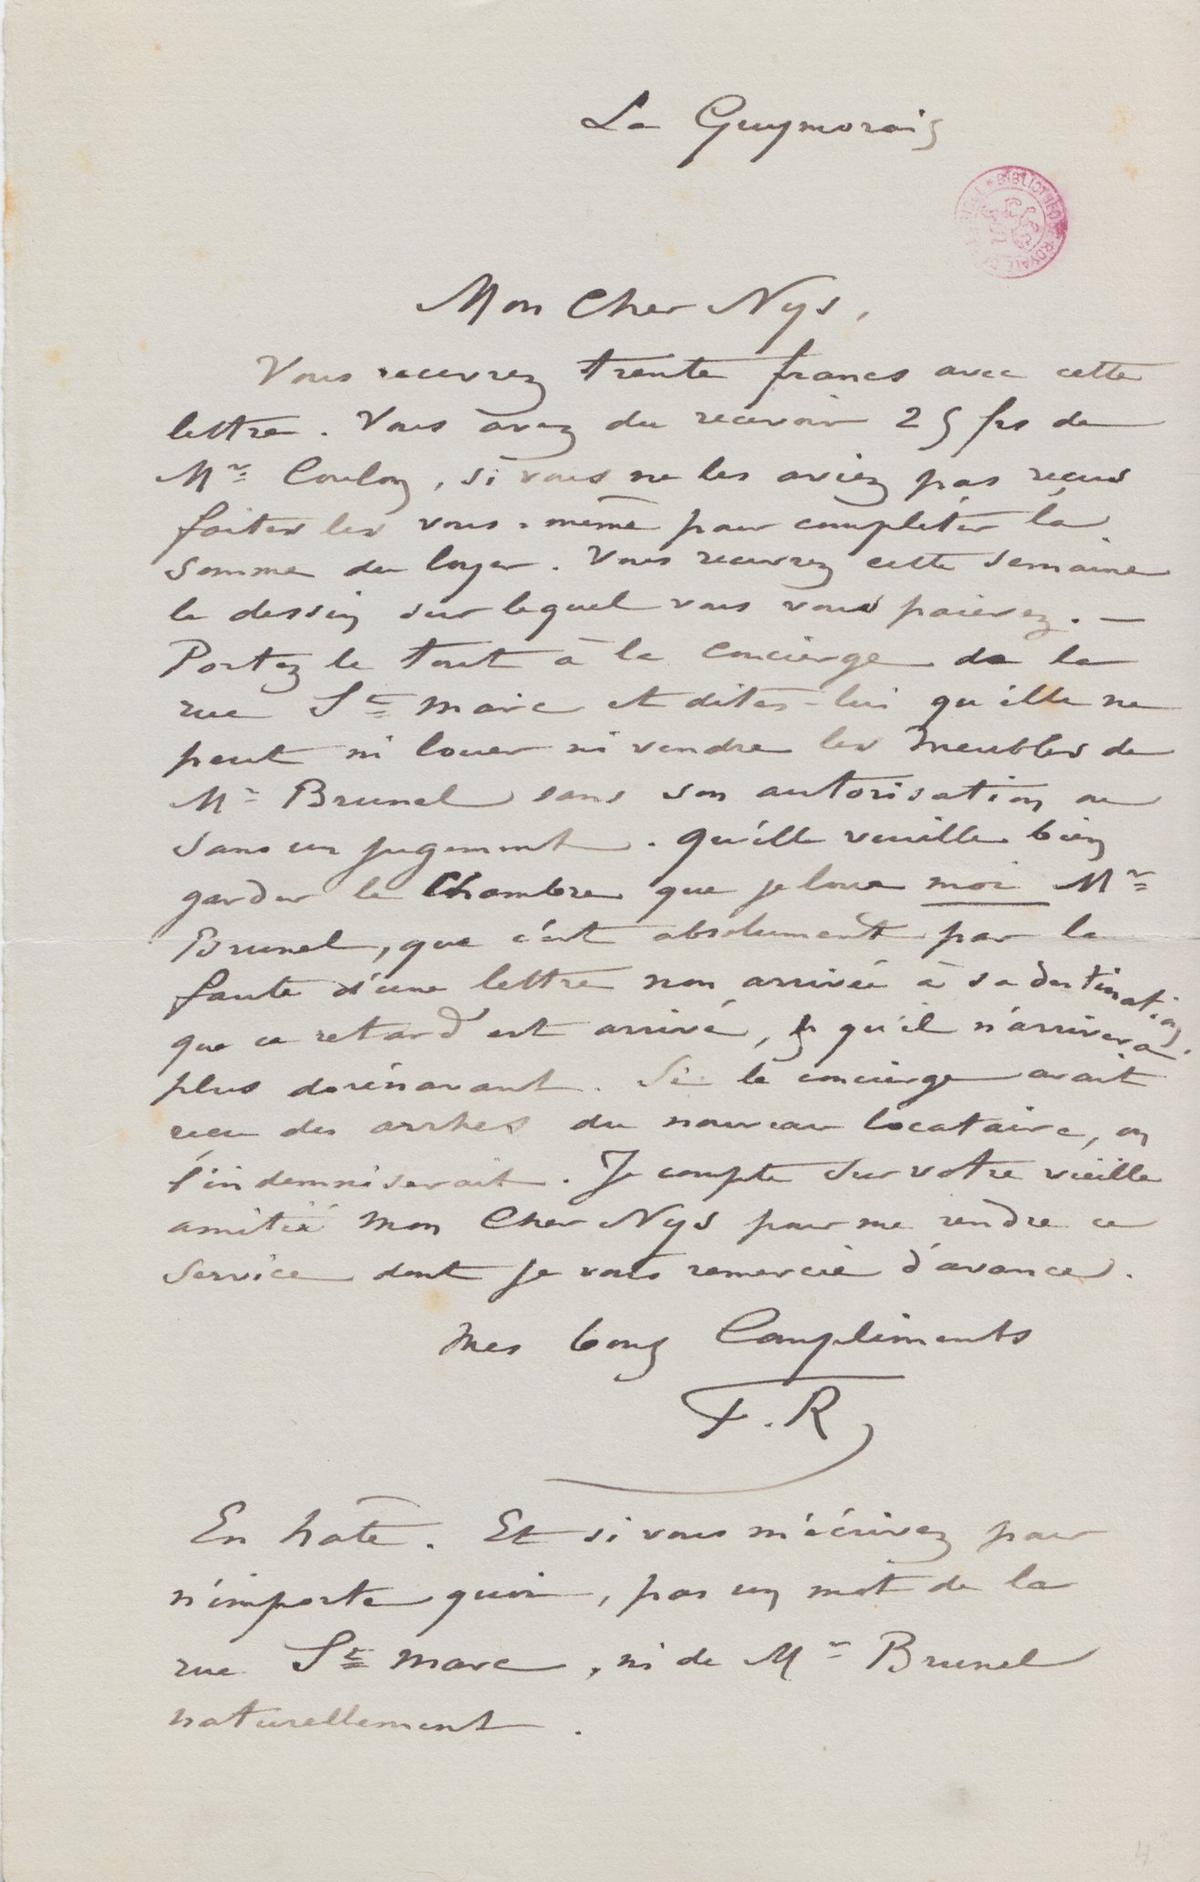 La Guymorais
BIBLIOTHEQUE ROYALE DE
Mon Cher Nys,
Vous recevrez trente francs avec cette
lettre. Vous avez du recevoir 25 frs de
Mr Coulon, si vous ne les aviez pas reçus
faites les vous-même pour complèter la
somme du loyer. Vous recevrez cette semaine
le dessin sur lequel vous vous paierez. —
Portez le tout à la concierge de la
rue St marc et dites-lui qu'elle ne
peut ni louer ni vendre les meubles de
Mr Brunel sans son autorisation ou
sans un jugement. Qu'elle veuille bien
garder la Chambre que je loue moi Mr
Brunel, que c'est absolument par la
faute d'une lettre non arrivée à sa destination
que ce retard est arrivé, & qu'il n'arrivera
plus dorénavant. Si le concierge avait
reçu des arrhes du nouveau locataire, on
l'indemniserait. Je compte sur votre vieille
amitié mon Cher Nys pour me rendre ce
service dont je vous remercie d'avance.
Mes bons Compliments
F. R
En hate. Et si vous m'écrivez pour
n'importe quoi, pas un mot de la
rue St marc, ni de Mr Brunel
naturellement.
4